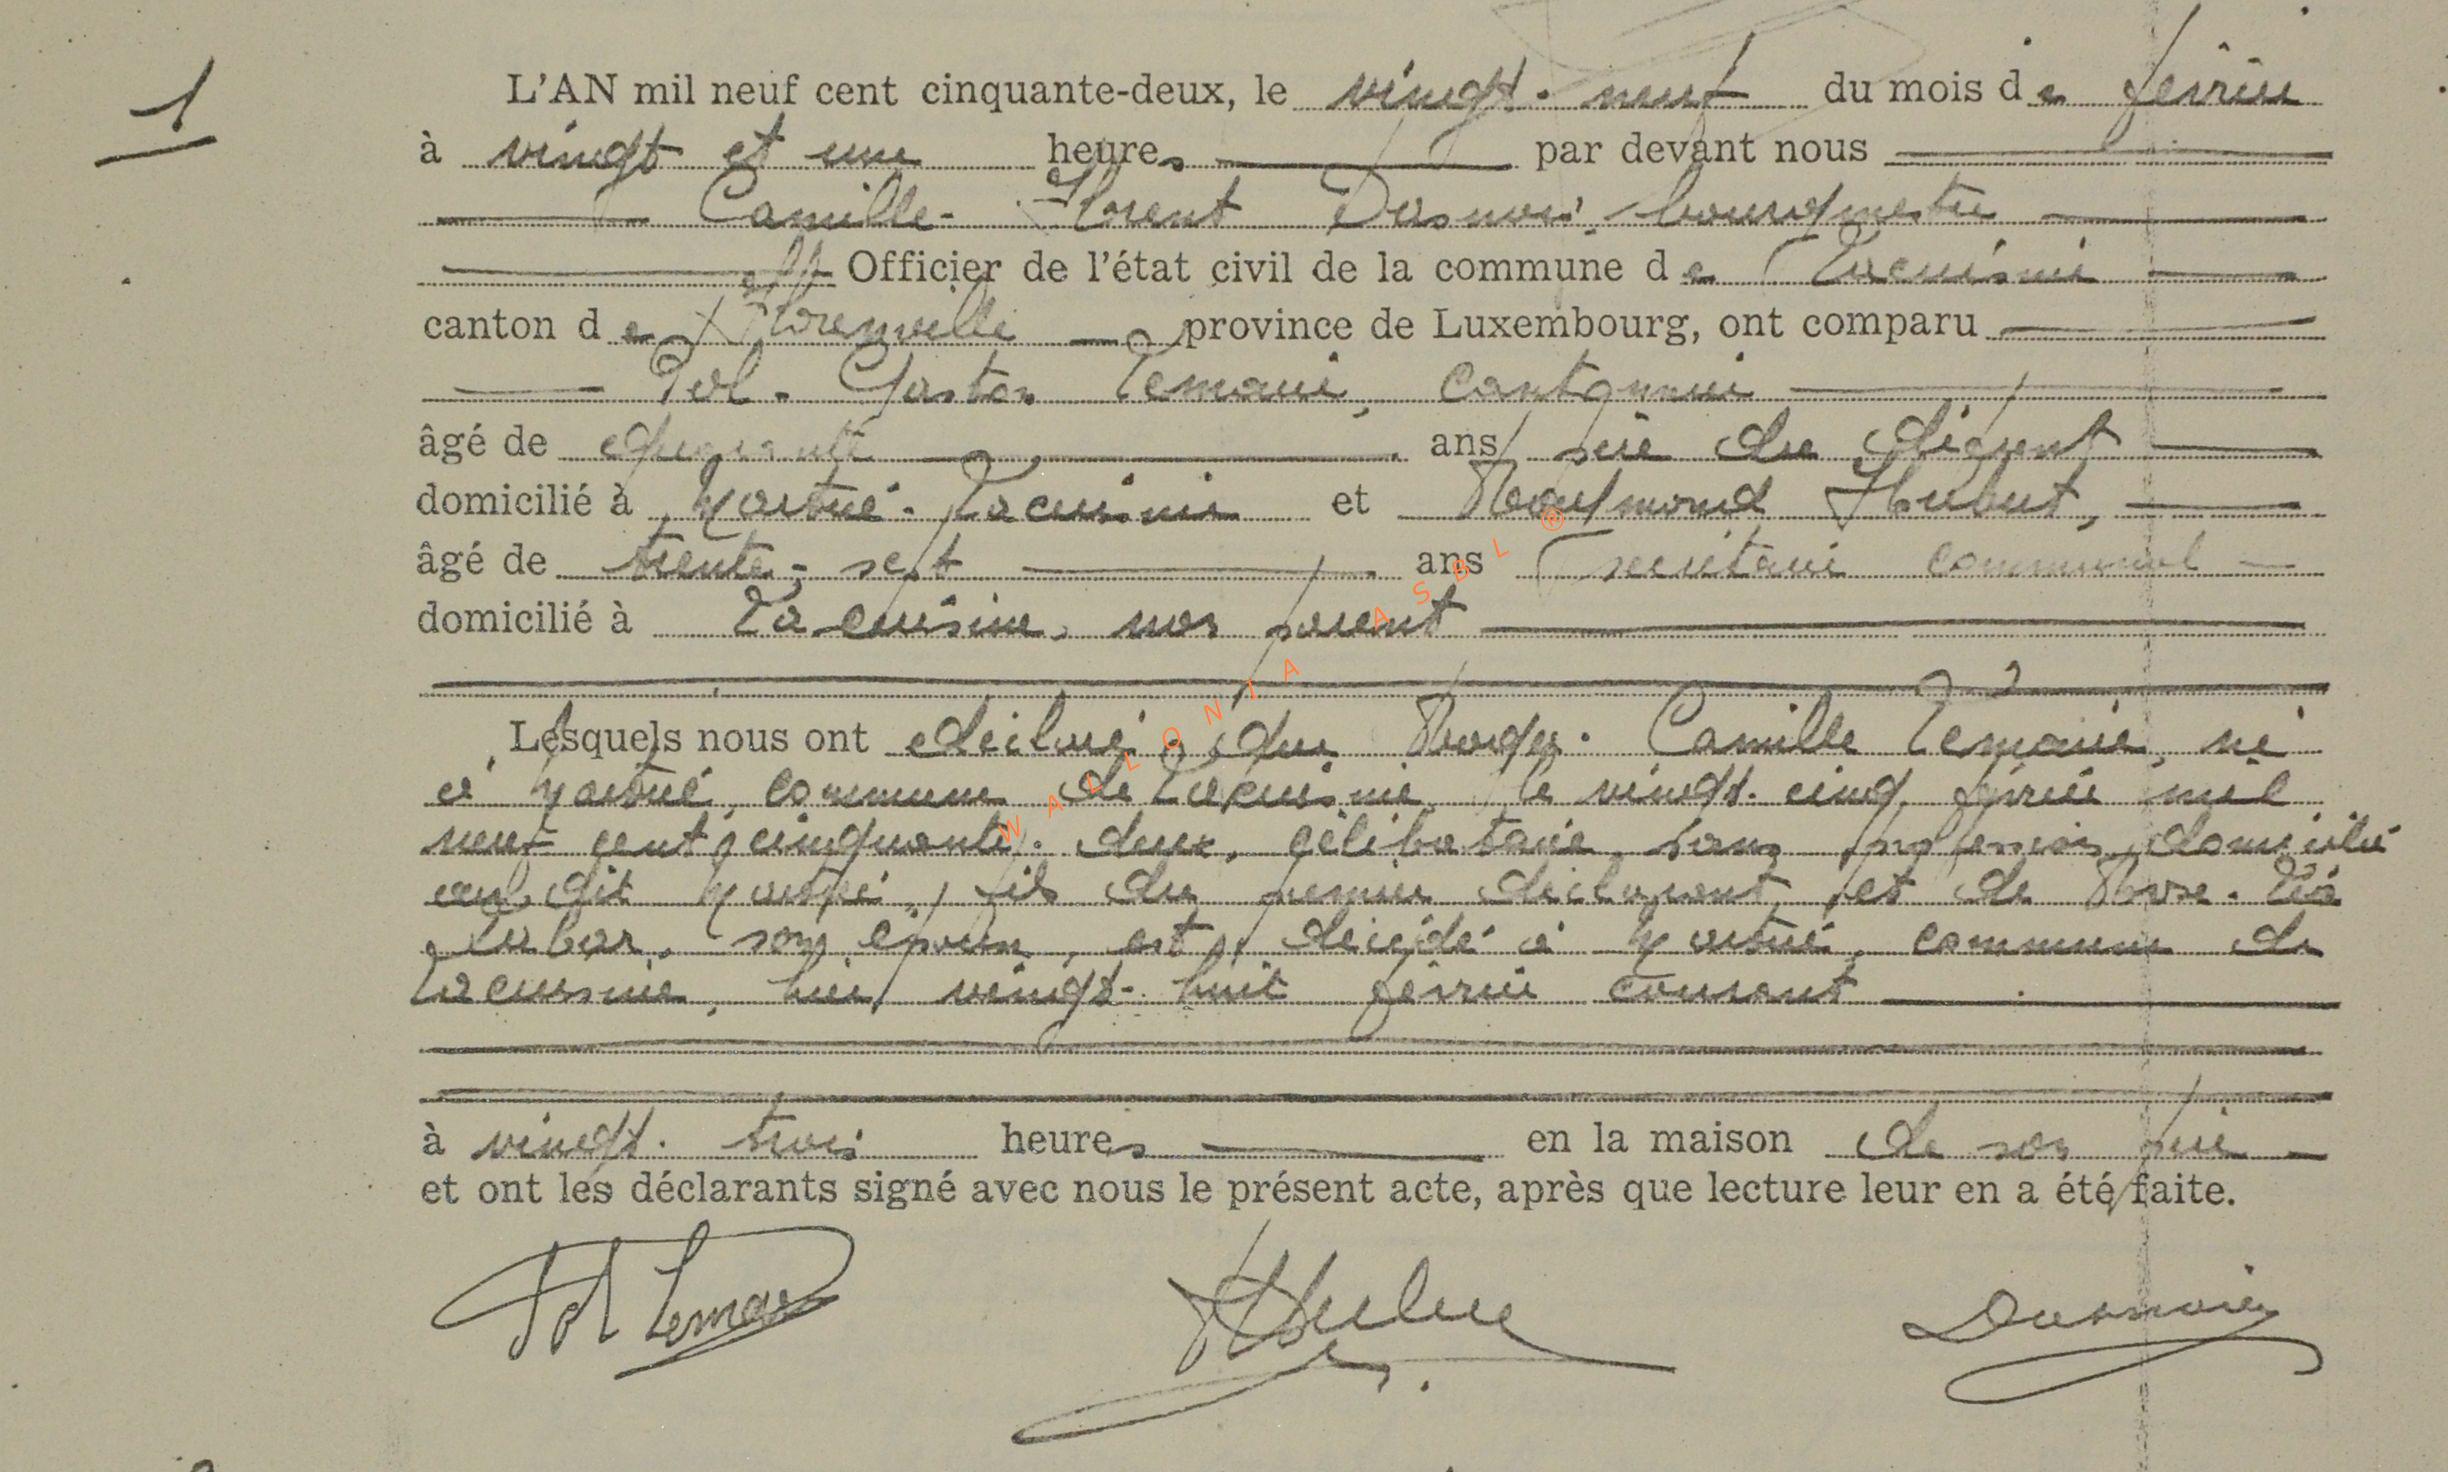 1
L'AN mil neuf cent cinquante-deux, le vingt-neuf du mois de février
à vingt et une heures par devant nous
Camille-Florent Dasnois, bourgmestre
Officier de l'état civil de la commune de Lacuisine
canton de Florenville province de Luxembourg, ont comparu
Pol-Gaston Lemaire, cantonnier
âgé de quarante ans père du défunt
domicilié à Martué-Lacuisine et Raymond Hubert,
âgé de trente-sept ans secrétaire communal
domicilié à Lacuisine, non parent
Lesquels nous ont déclaré que Roger-Camille Lemaire, né
à Martué, commune de Lacuisine le vingt-cinq février mil
neuf cent cinquante-deux, célibataire, sans profession, domicilié
au dit Martué, fils du premier déclarant et de Rose-Léa
son épouse, est décédé à Martué, commune de
Lacuisine, hier vingt-huit février courant
à vingt-trois heures en la maison de son père
et ont les déclarants signé avec nous le présent acte, après que lecture leur en a été faite.
Pol Lemaire
WALLONIA ASBL ®